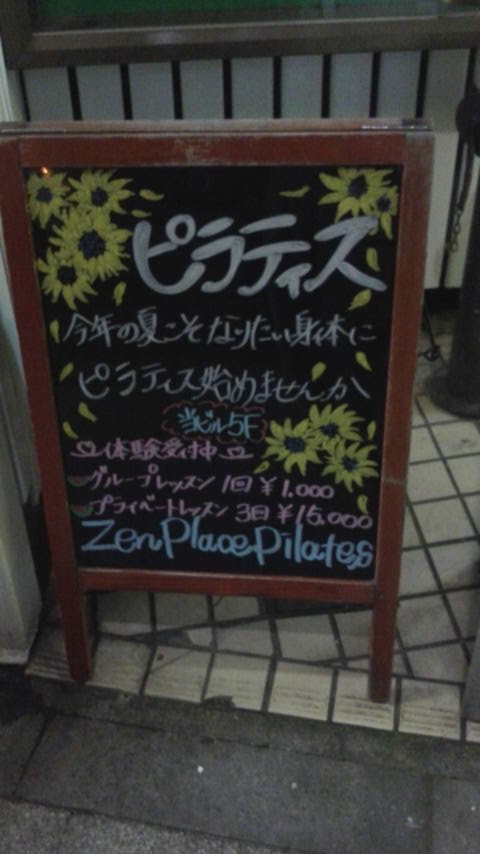 ピラティス
今年の夏こそなりたい身体に
ピラティス始めませんか
当ビル5F
体験受付中
グループレッスン 1回 ¥1,000
プライベートレッスン 3回 ¥15,000
Zen Place Pilates